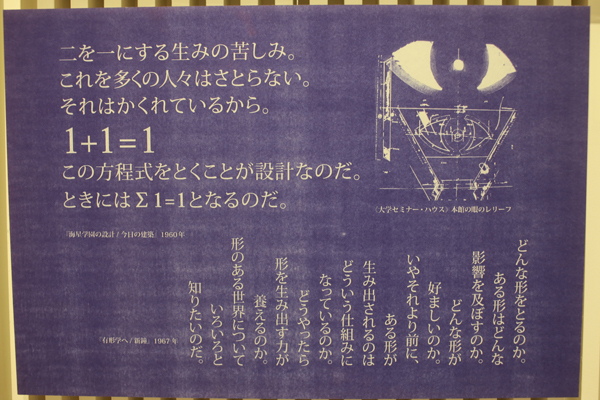 二を一にする生みの苦しみ。
これを多くの人々はさとらない。
それはかくれているから。
1+1=1
この方程式をとくことが設計なのだ。
ときにはΣ1=1となるのだ。
「海星学園の設計/今日の建築」1960年
〈大学セミナー・ハウス〉本館の眼のレリーフ
どんな形をとるのか。
ある形はどんな
影響を及ぼすのか。
どんな形が
好ましいのか。
いやそれより前に、
ある形が
生み出されるのは
どういう仕組みに
なっているのか。
どうやったら
形を生み出す力が
養えるのか。
形のある世界について
いろいろと
知りたいのだ。
「有形学へ/新鐘」1967年